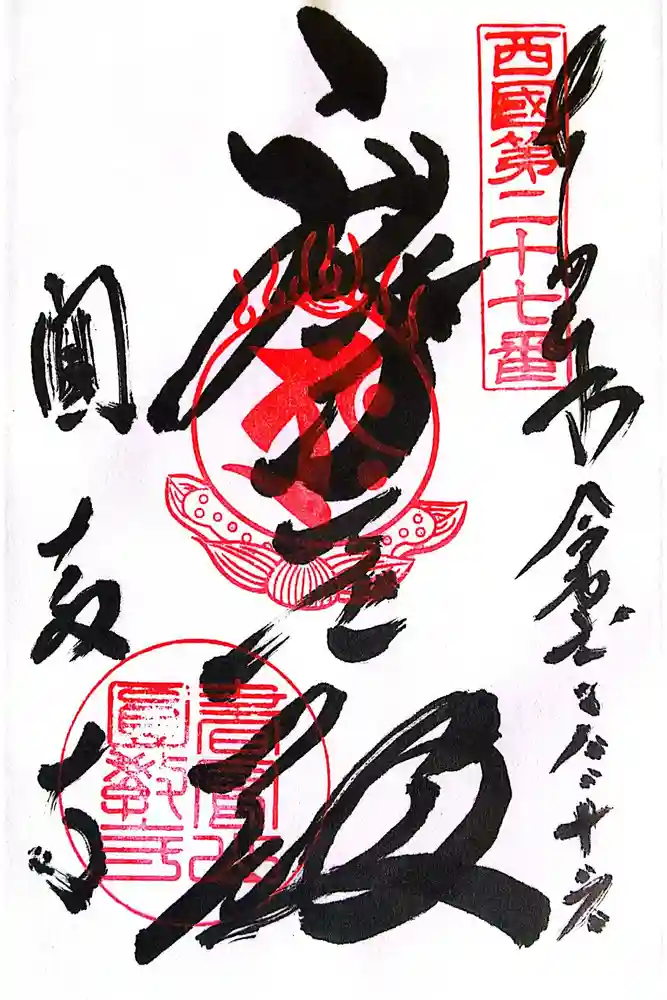 西國第二十七番
奉拝
摩尼殿
圓教寺
書寫山
圓教寺